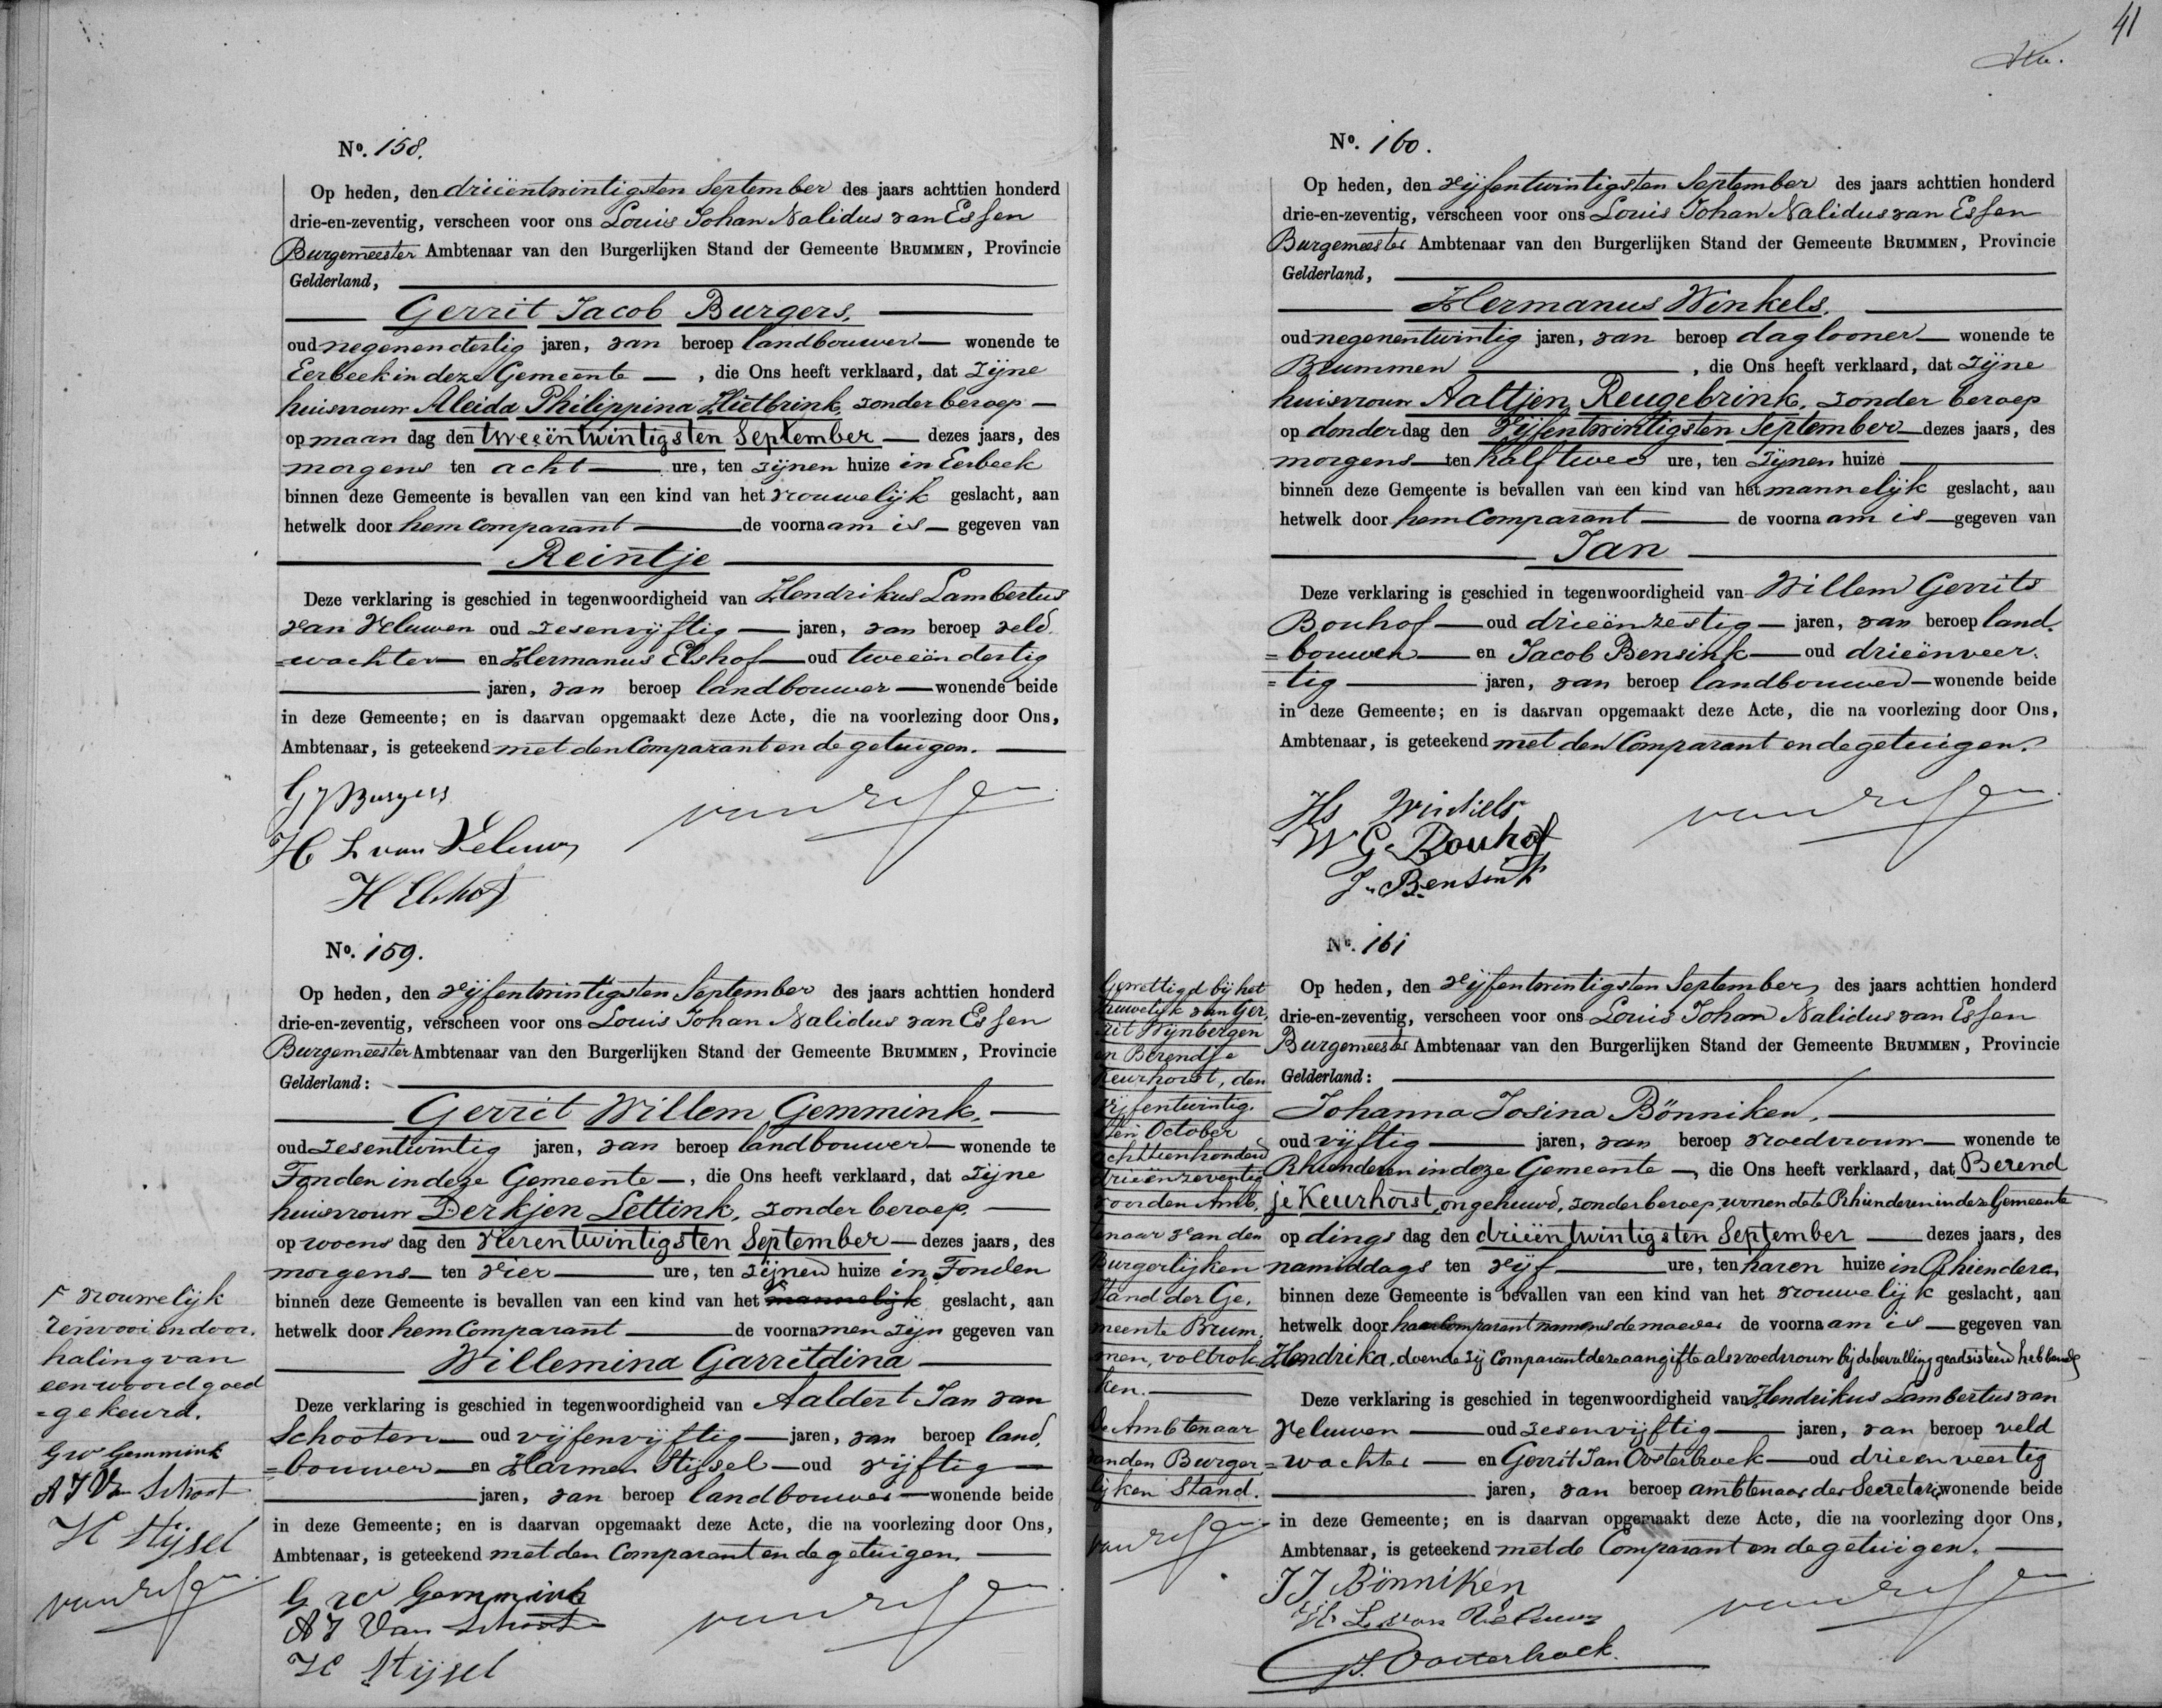 No. 158.
Op heden, den drieëntwintigsten September des jaars achttien honderd
drie-en-zeventig, verscheen voor ons Louis Johan Nalidus van Essen
Burgemeester Ambtenaar van den Burgerlijken Stand der Gemeente BRUMMEN, Provincie
Gelderland,
Gerrit Jacob Burgers,
oud negenendertig jaren, van beroep landbouwer — wonende te
Eerbeek in deze Gemeente —, die Ons heeft verklaard, dat zijne
huisvrouw Aleida Philippina Hietbrink, zonder beroep —
op maandag den tweeëntwintigsten September — dezes jaars, des
morgens ten acht — ure, ten zijnen huize in Eerbeek
binnen deze Gemeente is bevallen van een kind van het vrouwelijk geslacht, aan
hetwelk door hem Comparant — de voornaam is — gegeven van
Reintje
Deze verklaring is geschied in tegenwoordigheid van Hendrikus Lambertus
van Veluwen oud zesenvijftig — jaren, van beroep veld
=wachter — en Hermanus Elshof — oud tweeëndertig
— jaren, van beroep landbouwer — wonende beide
in deze Gemeente; en is daarvan opgemaakt deze Acte, die na voorlezing door Ons,
Ambtenaar, is geteekend met den Comparant en de getuigen. —
G J Burgers
van Essen
H L van Veluwen
H Elshof
No. 159.
Op heden, den vijfentwintigsten September des jaars achttien honderd
drie-en-zeventig, verscheen voor ons Louis Johan Nalidus van Essen
Burgemeester Ambtenaar van den Burgerlijken Stand der Gemeente BRUMMEN, Provincie
Gelderland:
Gerrit Willem Gemmink, —
oud zesentwintig jaren, van beroep landbouwer — wonende te
Tonden in deze Gemeente —, die Ons heeft verklaard, dat zijne
huisvrouw Derkjen Lettink, zonder beroep. —
op woensdag den vierentwintigsten September — dezes jaars, des
morgens — ten vier — ure, ten zijnen huize in Tonden
binnen deze Gemeente is bevallen van een kind van het mannelijk geslacht, aan
hetwelk door hem Comparant — de voornamen zijn gegeven van
Willemina Garritdina —
Deze verklaring is geschied in tegenwoordigheid van Aaldert Jan van
Schooten — oud vijfenvijftig — jaren, van beroep land
=bouwer — en Harmen Stijsel — oud vijftig —
— jaren, van beroep landbouwer — wonende beide
in deze Gemeente; en is daarvan opgemaakt deze Acte, die na voorlezing door Ons,
Ambtenaar, is geteekend met den Comparant en de getuigen. —
G W Gemmink
A J Van Schoot
van Essen
H Stijsel
vrouwelijk
renvooi en door.
haling van
een woord goed
=gekeurd.
GW Gemmink
A J Van Schoot
H Stijsel
van Essen
41
No. 160.
Op heden, den vijfentwintigsten September des jaars achttien honderd
drie-en-zeventig, verscheen voor ons Louis Johan Nalidus van Essen
Burgemeester Ambtenaar van den Burgerlijken Stand der Gemeente BRUMMEN, Provincie
Gelderland,
Hermanus Winkels,
oud negenentwintig jaren, van beroep daglooner — wonende te
Brummen —, die Ons heeft verklaard, dat zijne
huisvrouw Aaltjen Reugebrink, zonder beroep
op donderdag den vijfentwintigsten September — dezes jaars, des
morgens — ten half twee ure, ten zijnen huize —
binnen deze Gemeente is bevallen van een kind van het mannelijk geslacht, aan
hetwelk door hem Comparant — de voornaam is — gegeven van
Jan
Deze verklaring is geschied in tegenwoordigheid van Willem Gerrits
Bouhof — oud drieënzestig — jaren, van beroep land.
=bouwer — en Jacob Bensink — oud drieënveer.
=tig — jaren, van beroep landbouwer — wonende beide
in deze Gemeente; en is daarvan opgemaakt deze Acte, die na voorlezing door Ons,
Ambtenaar, is geteekend met den Comparant en de getuigen.
Hs Winkels
van Essen
W G Bouhof
J. Bensink
No. 161
Op heden, den vijfentwintigsten September, des jaars achttien honderd
drie-en-zeventig, verscheen voor ons Louis Johan Nalidus van Essen
Burgemeester Ambtenaar van den Burgerlijken Stand der Gemeente BRUMMEN, Provincie
Gelderland:
Johanna Josina Bönniken, —
oud vijftig — jaren, van beroep vroedvrouw — wonende te
Rhienderen in deze Gemeente —, die Ons heeft verklaard, dat Berend
je Keurhorst, ongehuwd, zonder beroep, wonende te Rhienderen in deze Gemeente
op dingsdag den drieëntwintigsten September — dezes jaars, des
namiddags ten vijf — ure, ten haren huize in Rhienderen
binnen deze Gemeente is bevallen van een kind van het vrouwelijk geslacht, aan
hetwelk door haar Comparant namens de moeder de voornaam is — gegeven van
Hendrika, doende zij Comparant deze aangifte als vroedvrouw bij de bevalling geadsisteerd hebbende
Deze verklaring is geschied in tegenwoordigheid van Hendrikus Lambertus van
Veluwen — oud zesenvijftig — jaren, van beroep veld
=wachter — en Gerrit Jan Oosterhoek — oud drieenveertig
— jaren, van beroep ambtenaar der Secretarie wonende beide
in deze Gemeente; en is daarvan opgemaakt deze Acte, die na voorlezing door Ons,
Ambtenaar, is geteekend met de Comparant en de getuigen. —
J J Bönniken
van Essen
H L van Veluwen
GJ. Oosterhoek
Gewettigd bij het
huwelijk van Ger,
rit Wijnbergen
en Berendje
Keurhorst, den
vijfentwintig.
sten October
achttienhonderd
drieënzeventig
voor den Amb.
tenaar van den
Burgerlijken
Stand der Ge.
meente Brum.
men, voltrok.
ken. —
De Ambtenaar
van den Burger
lijken Stand.
van Essen